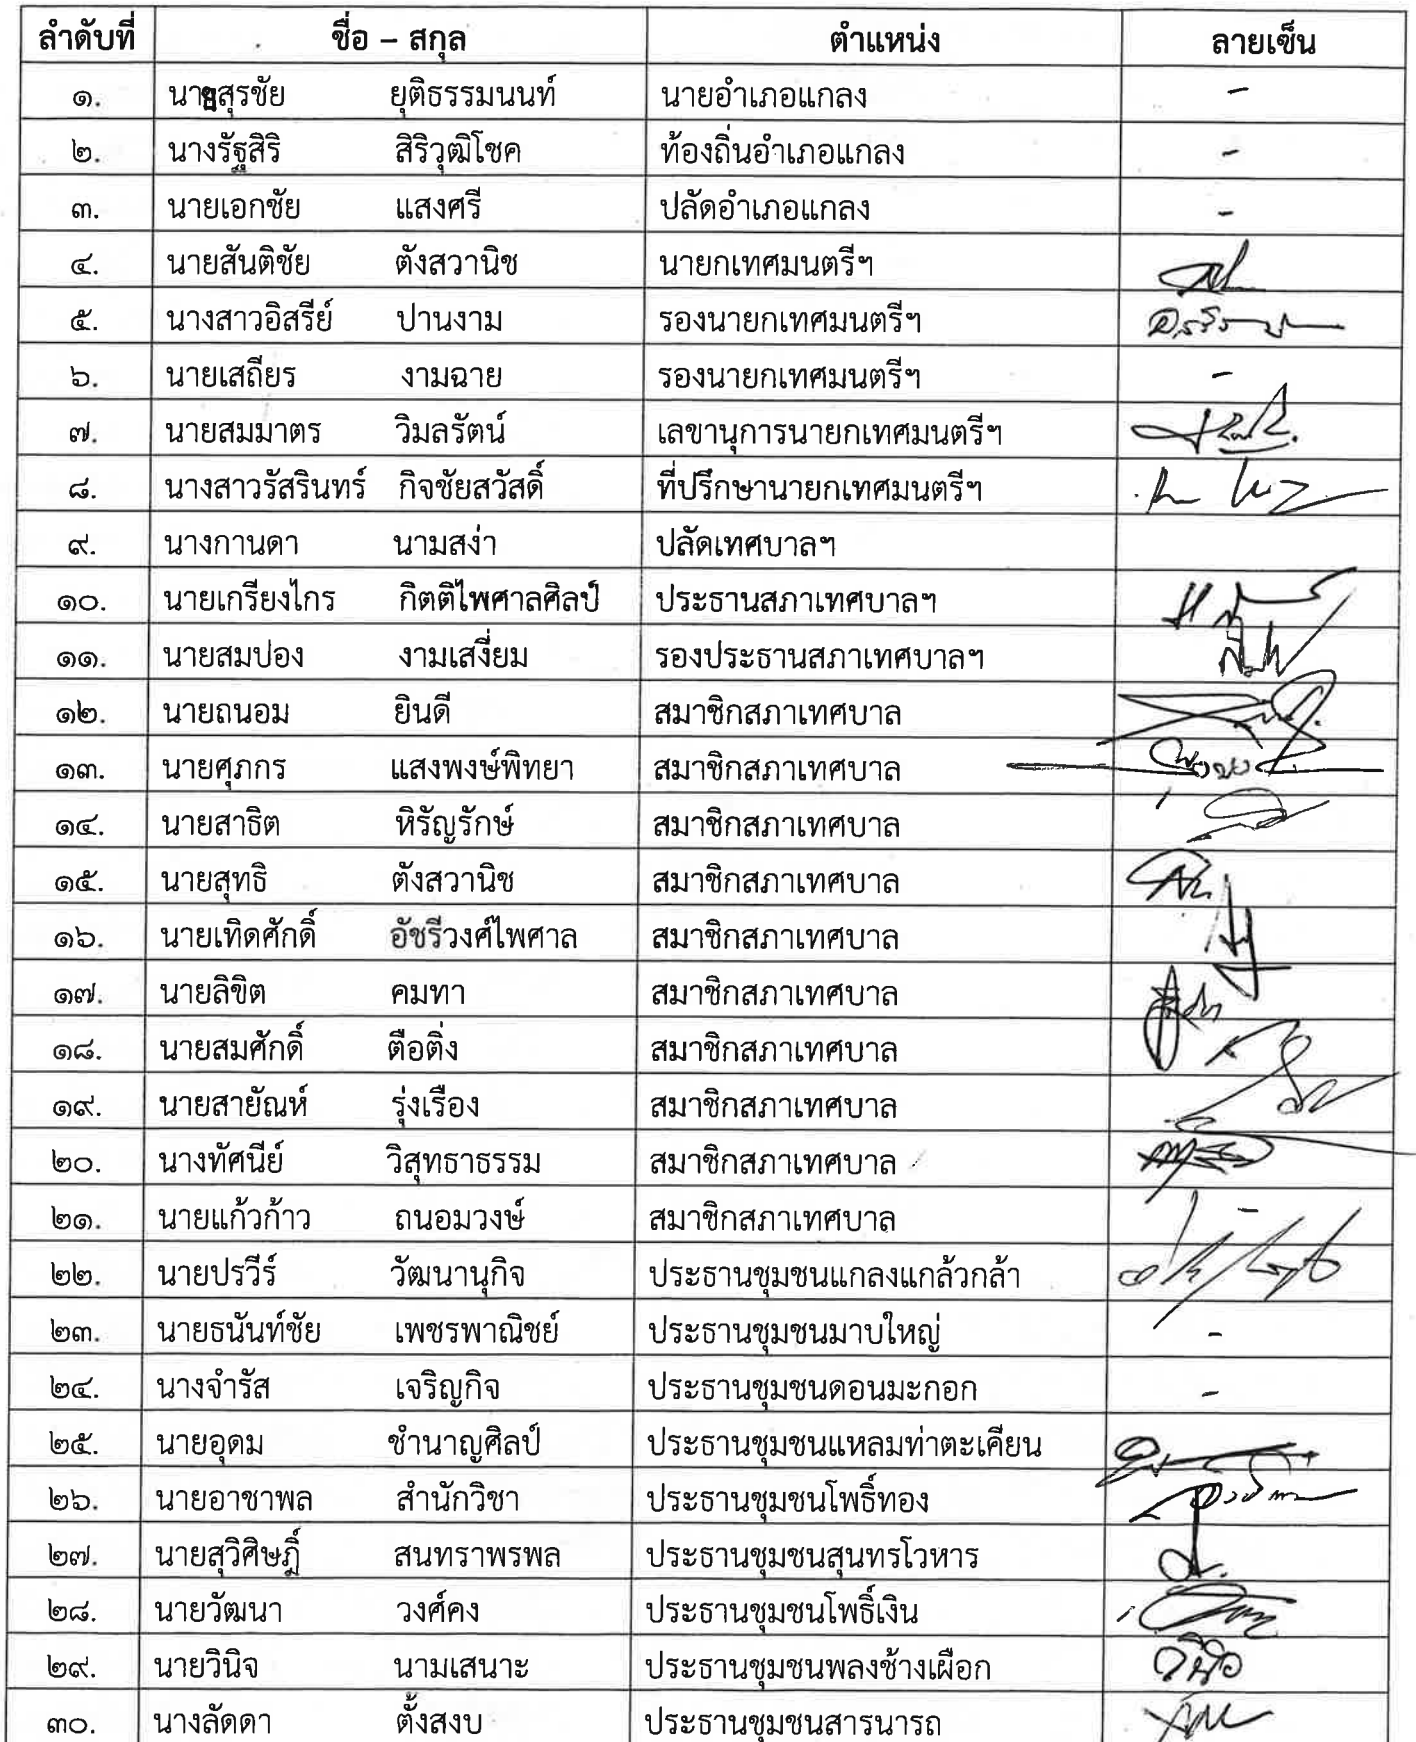 ลำดับที่ ชื่อ – สกุล ตำแหน่ง ลายเซ็น
๑. นายสุรชัย ยุติธรรมนนท์ นายอำเภอแกลง -
๒. นางรัฐสิริ สิริวุฒิโชค ท้องถิ่นอำเภอแกลง -
๓. นายเอกชัย แสงศรี ปลัดอำเภอแกลง -
๔. นายสันติชัย ตังสวานิช นายกเทศมนตรีฯ
๕. นางสาวอิสรีย์ ปานงาม รองนายกเทศมนตรีฯ
๖. นายเสถียร งามฉาย รองนายกเทศมนตรีฯ -
๗. นายสมมาตร วิมลรัตน์ เลขานุการนายกเทศมนตรีฯ
๘. นางสาวรัสรินทร์ กิจชัยสวัสดิ์ ที่ปรึกษานายกเทศมนตรีฯ
๙. นางกานดา นามสง่า ปลัดเทศบาลฯ
๑๐. นายเกรียงไกร กิตติไพศาลศิลป์ ประธานสภาเทศบาลฯ
๑๑. นายสมปอง งามเสงี่ยม รองประธานสภาเทศบาลฯ
๑๒. นายถนอม ยินดี สมาชิกสภาเทศบาล
๑๓. นายศุภกร แสงพงษ์พิทยา สมาชิกสภาเทศบาล
๑๔. นายสาธิต หิรัญรักษ์ สมาชิกสภาเทศบาล
๑๕. นายสุทธิ ตังสวานิช สมาชิกสภาเทศบาล
๑๖. นายเทิดศักดิ์ อัชรีวงศ์ไพศาล สมาชิกสภาเทศบาล
๑๗. นายลิขิต คมทา สมาชิกสภาเทศบาล
๑๘. นายสมศักดิ์ ตือติ่ง สมาชิกสภาเทศบาล
๑๙. นายสายัณห์ รุ่งเรือง สมาชิกสภาเทศบาล
๒๐. นางทัศนีย์ วิสุทธาธรรม สมาชิกสภาเทศบาล
๒๑. นายแก้วก้าว ถนอมวงษ์ สมาชิกสภาเทศบาล -
๒๒. นายปรวีร์ วัฒนานุกิจ ประธานชุมชนแกลงแกล้วกล้า
๒๓. นายธนันท์ชัย เพชรพาณิชย์ ประธานชุมชนมาบใหญ่ -
๒๔. นางจำรัส เจริญกิจ ประธานชุมชนดอนมะกอก -
๒๕. นายอุดม ชำนาญศิลป์ ประธานชุมชนแหลมท่าตะเคียน
๒๖. นายอาชาพล สำนักวิชา ประธานชุมชนโพธิ์ทอง
๒๗. นายสุวิศิษฎิ์ สนทราพรพล ประธานชุมชนสุนทรโวหาร
๒๘. นายวัฒนา วงศ์คง ประธานชุมชนโพธิ์เงิน
๒๙. นายวินิจ นามเสนาะ ประธานชุมชนพลงช้างเผือก
๓๐. นางลัดดา ตั้งสงบ ประธานชุมชนสารนารถ